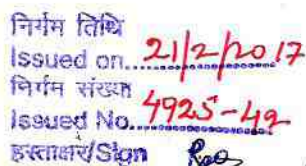 निर्गम तिथि
Issued on 21/2/2017
निर्गम संख्या
Issued No. 4925-49
हस्ताक्षर/Sign